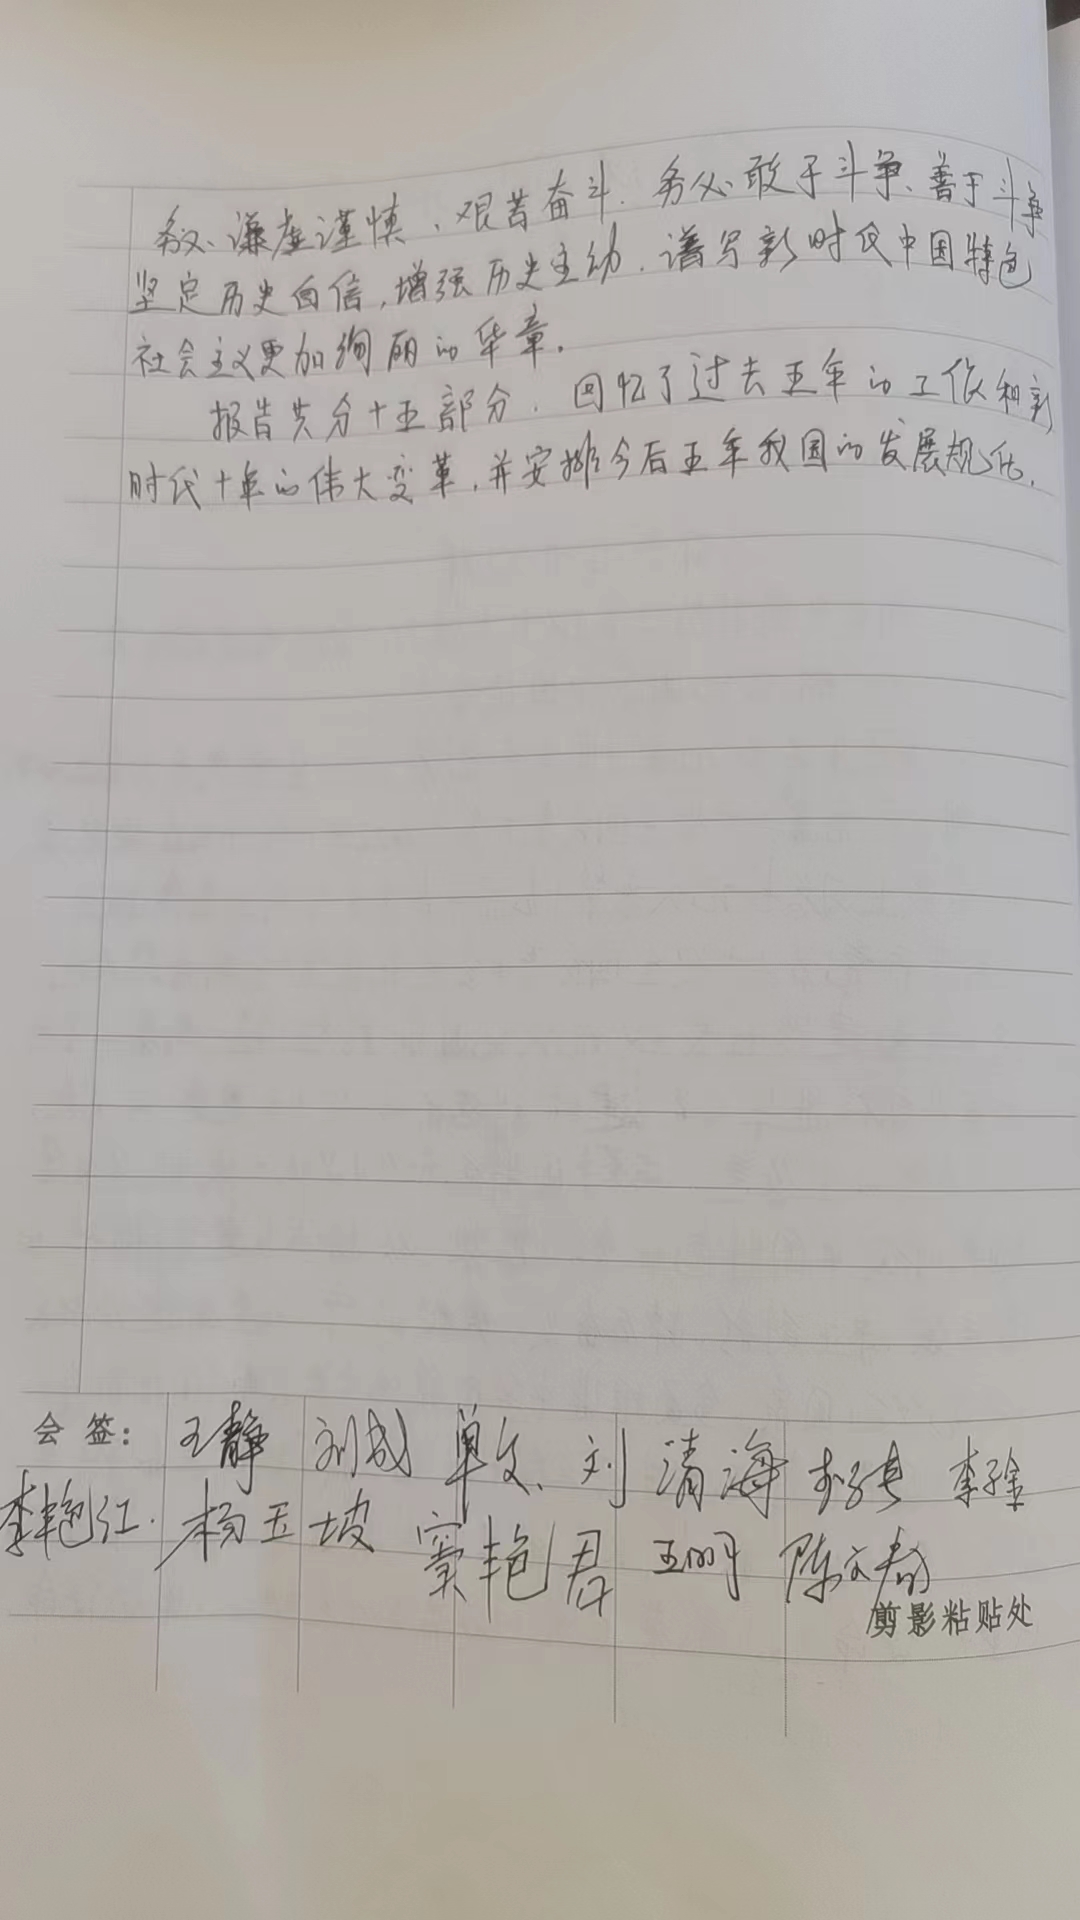 务必谦虚谨慎、艰苦奋斗.务必敢于斗争、善于斗争
坚定历史自信,增强历史主动.谱写新时代中国特色
社会主义更加绚丽的华章.
报告共分十五部分.回忆了过去五年的工作和新
时代十年的伟大变革,并安排今后五年我国的发展规化.
会签: 王静 刘成 单文 刘清海 李金
李艳红 杨玉坡 窦艳君 王明 陈文
剪影粘贴处